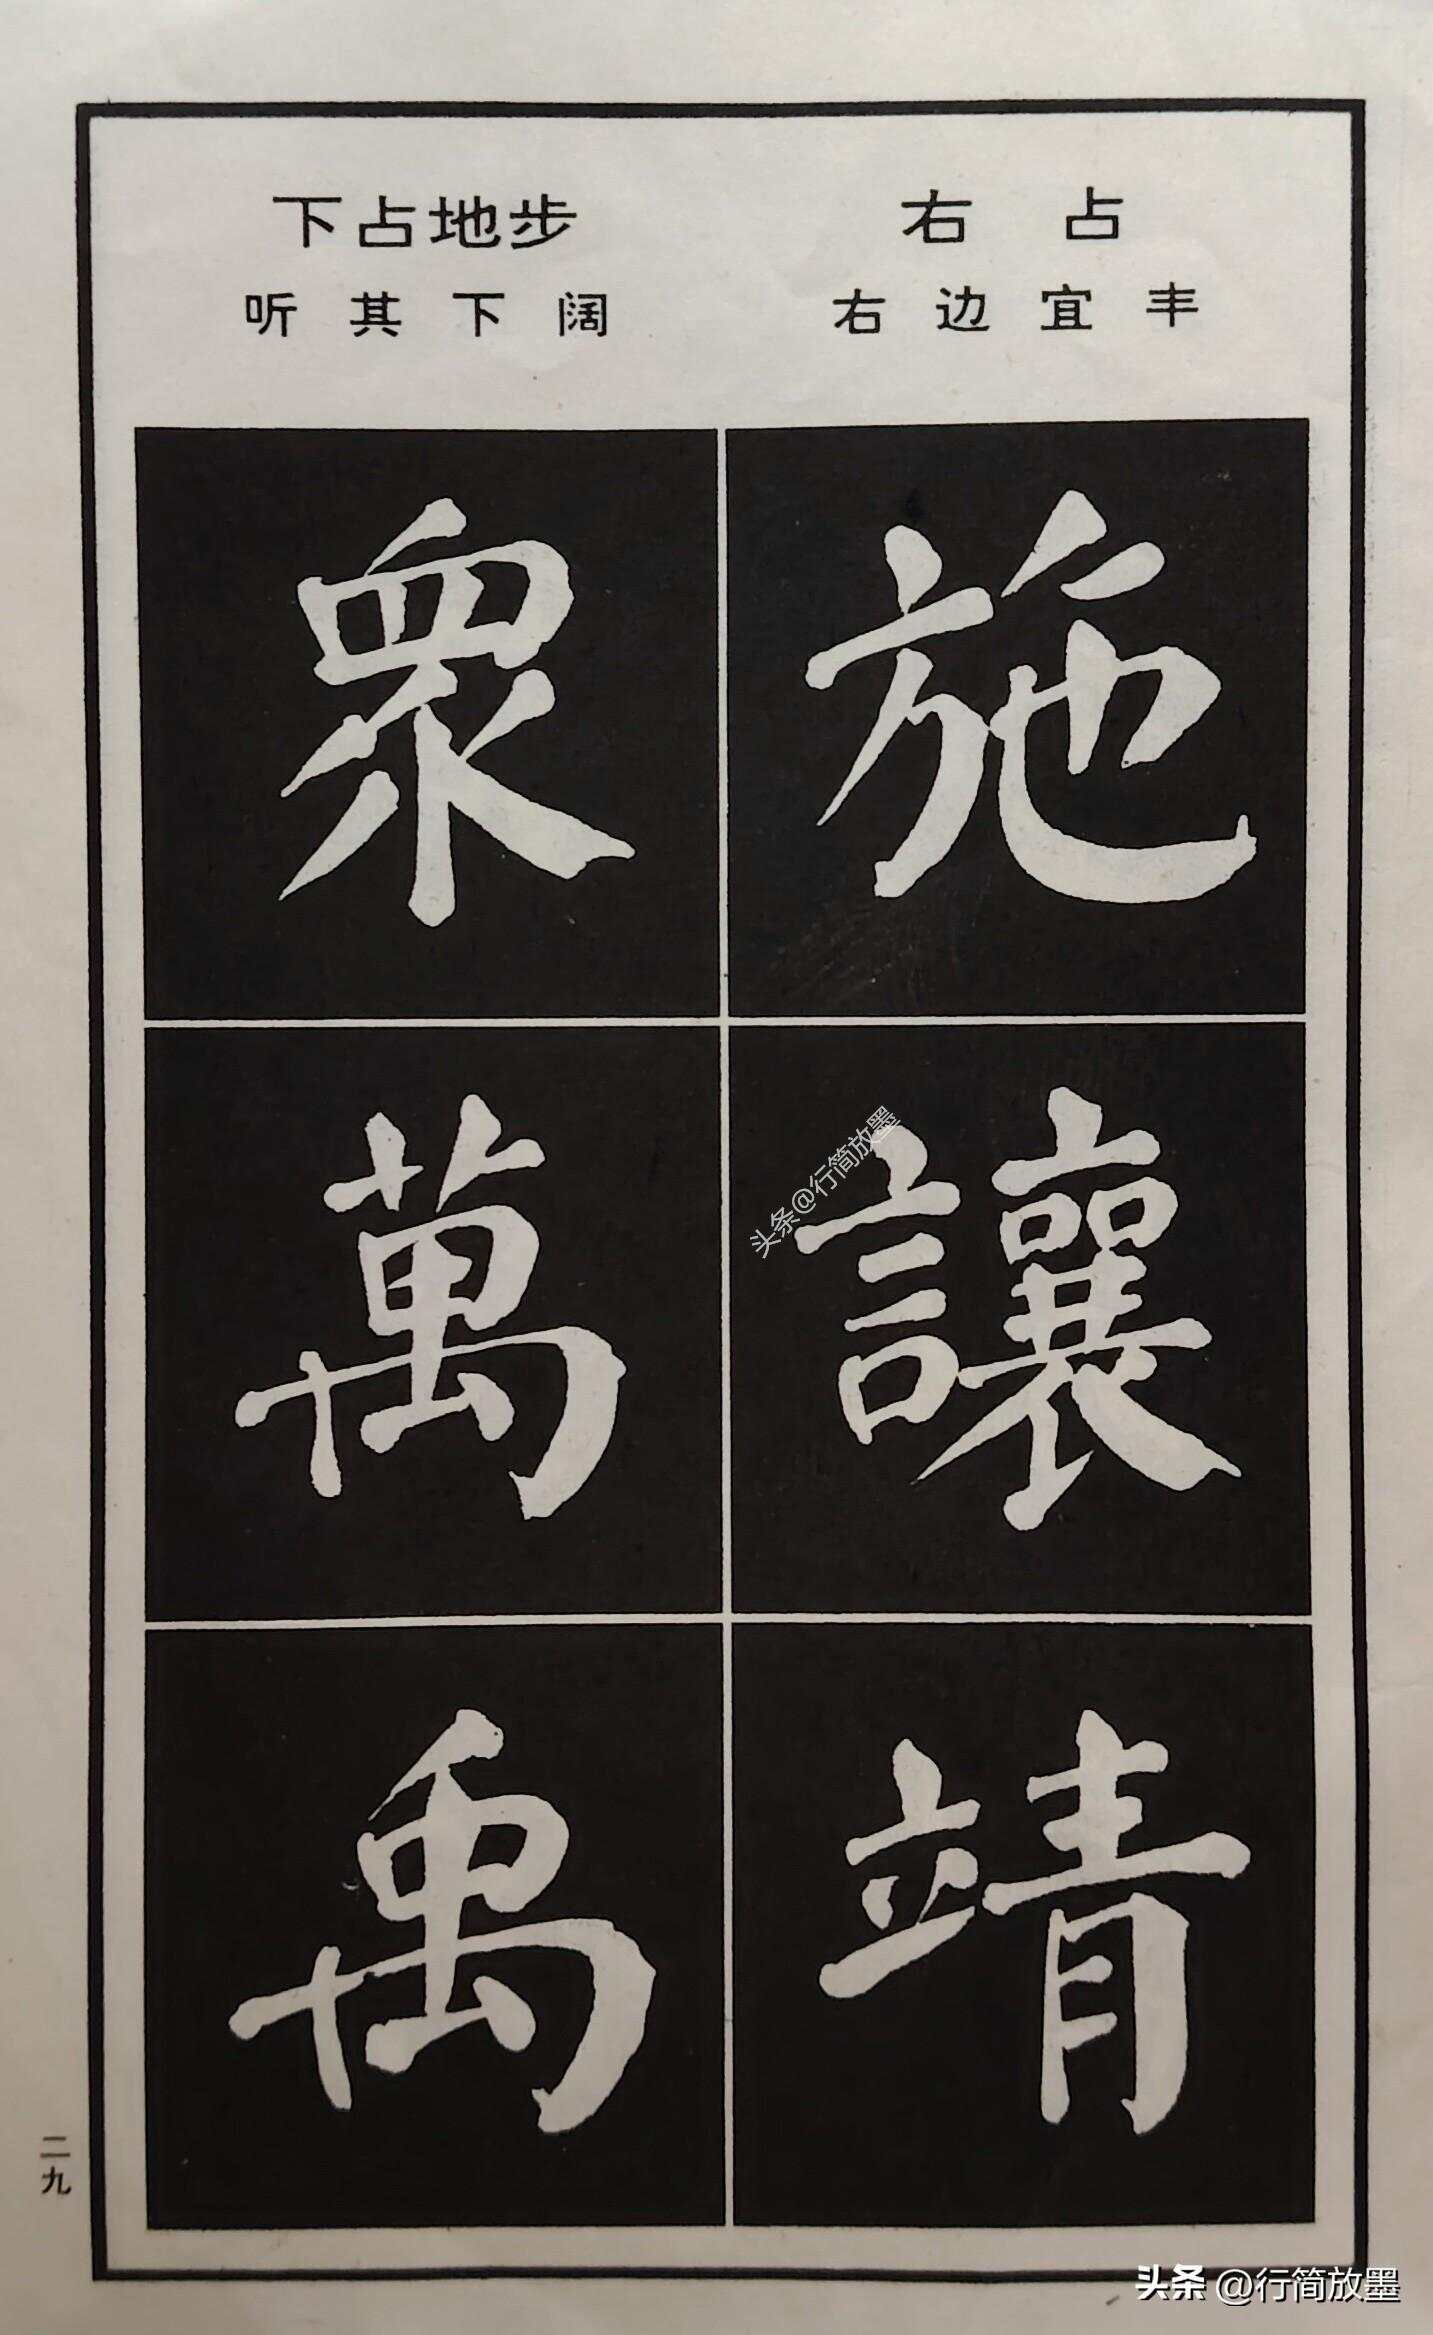 下占地步
听其下阔
右占
右边宜丰
眾
施
萬
讓
禹
靖
二九
头条@行简放墨
头条 @行简放墨